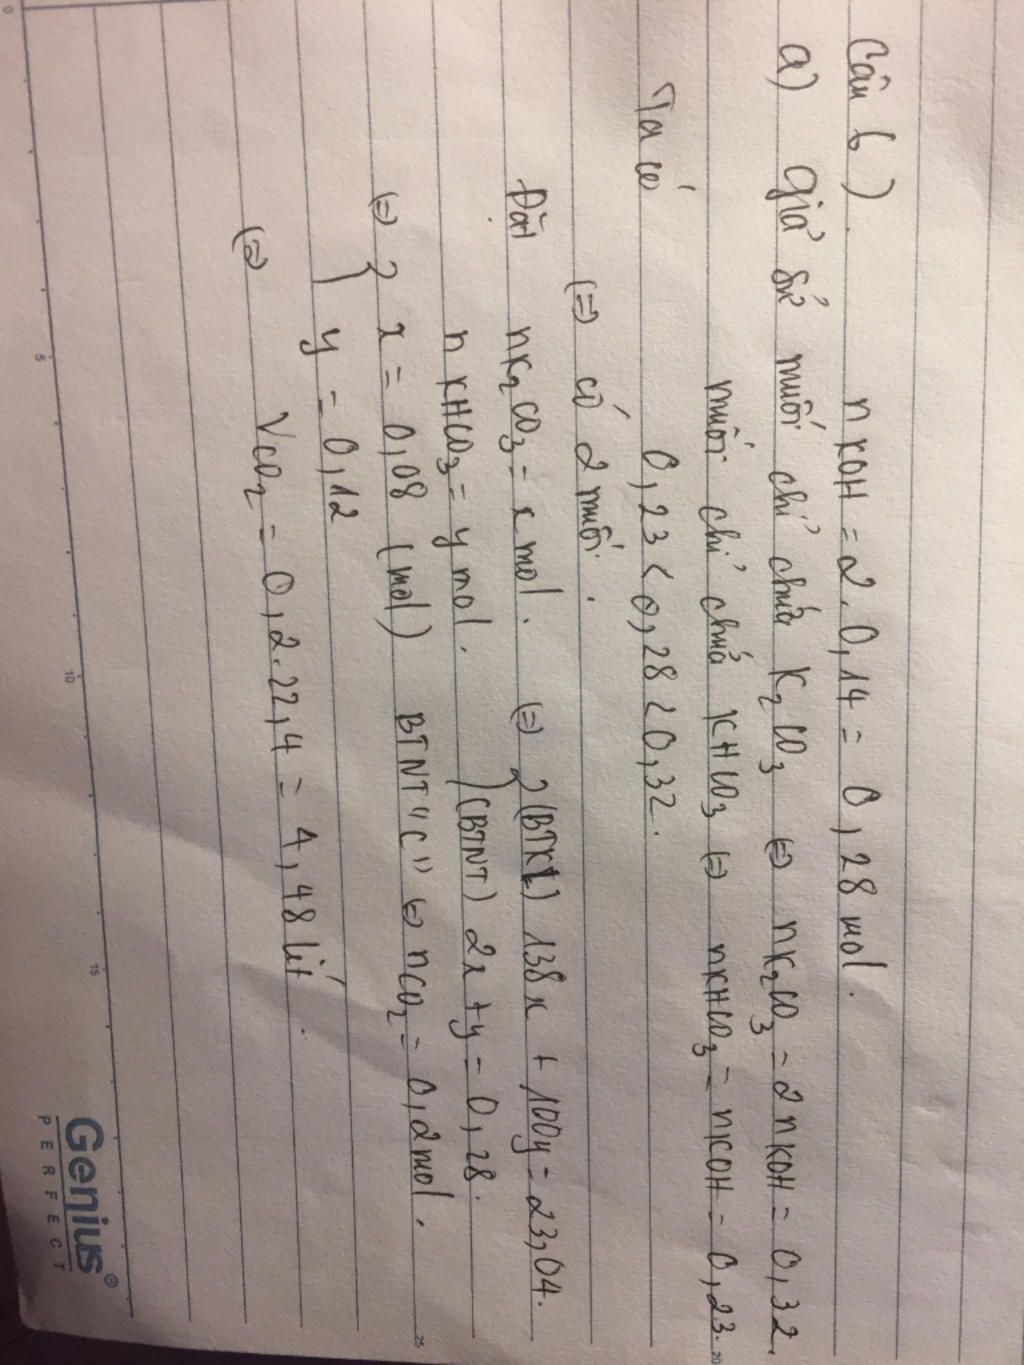 Câu 6) nKOH = 2.0,14 = 0,28 mol.
a) giả sử muối chỉ chứa K2CO3 (=) nK2CO3 = 2nKOH = 0,32.
muối chỉ chứa KHCO3 (=) nKHCO3 = nKOH = 0,23.
Ta có 0,23 < 0,28 < 0,32.
(=) có 2 muối.
Đặt nK2CO3 = x mol. (=) { (BTKL) 138x + 100y = 23,04.
nKHCO3 = y mol. (BTNT) 2x + y = 0,28.
(=) { x = 0,08 (mol) BTNT "C" (=) nCO2 = 0,2mol.
y = 0,12
(=) VCO2 = 0,2.22,4 = 4,48 lít.
Genius®
PERFECT
0
5
10
15
20
25